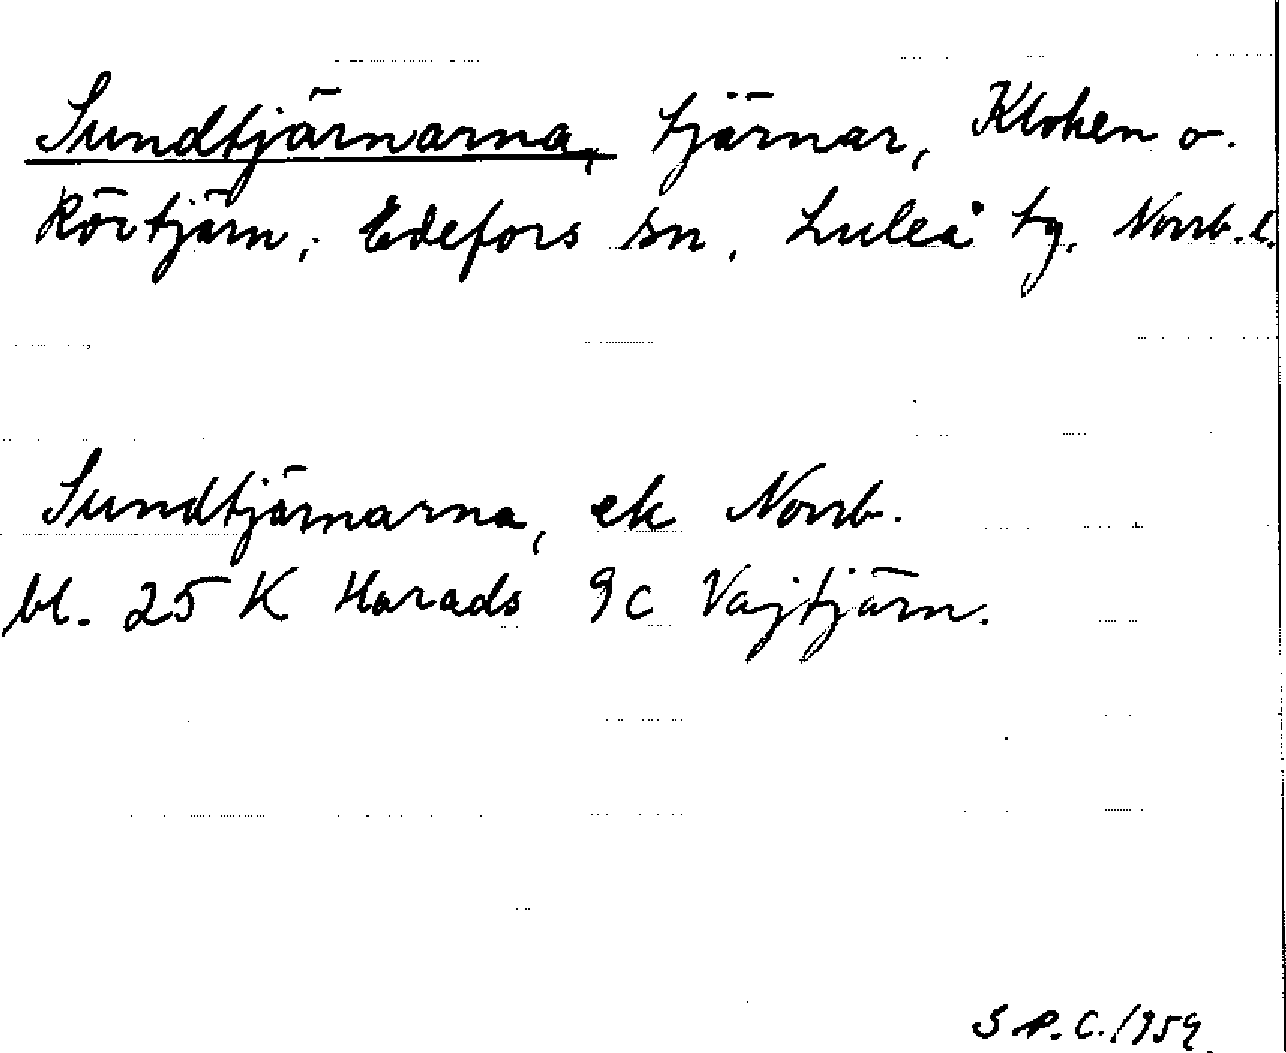 Sundtjärnarna, tjärnar, Kloken o.
Rörtjärn, Edefors sn, Luleå tg, Norrb. l.
Sundtjärnarna, ek Norrb.
bl. 25 K Harads 9c Vajtjärn.
S P. C. 1959.